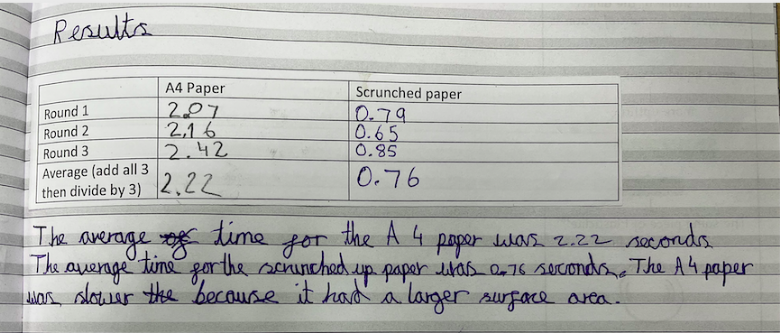 Results
A4 Paper Scrunched paper
Round 1 2.07 0.79
Round 2 2.16 0.65
Round 3 2.42 0.85
Average (add all 3
then divide by 3) 2.22 0.76
The average of time for the A 4 paper was 2.22 seconds
The average time for the scrunched up paper was 0.76 seconds. The A4 paper
was slower the because it had a larger surface area.